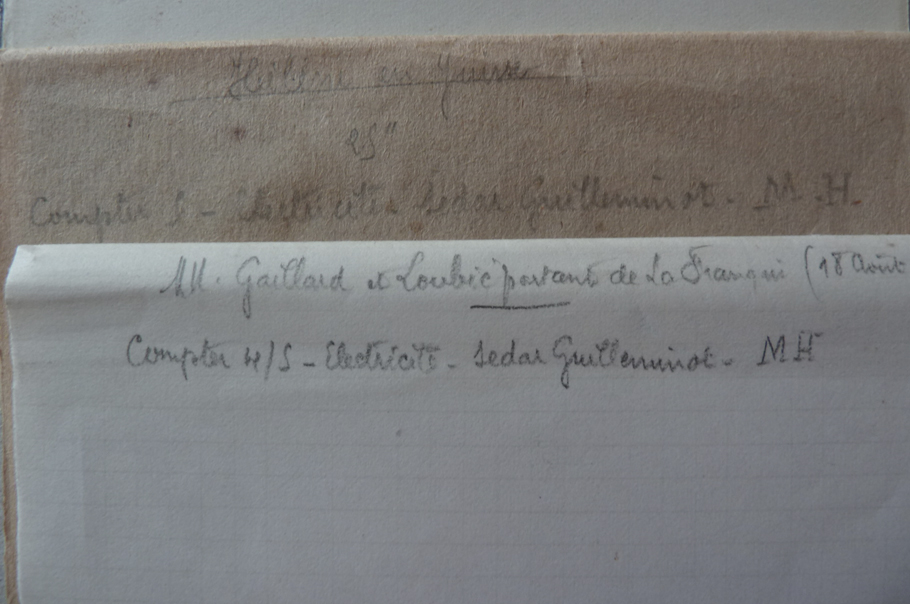 Hélène en
25"
Compter 5 - Electricité Sedar Guilleminot - M.H.
M. Gaillard et Loubic partant de La Franqui (18 Août
Compter 4/5 - Electricité - Sedar Guilleminot - MH